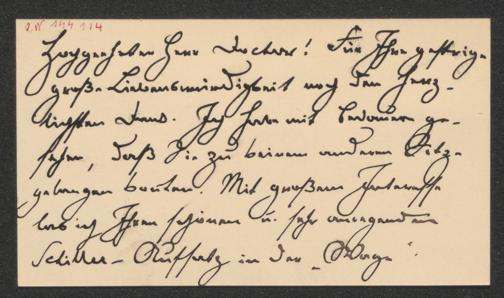 I.N. 144.114
Hochgeehrter Herr Doctor! Für Ihre gestrige
große Liebenswürdigkeit noch den herz-
lichsten Dank. Ich habe mit Bedauern ge-
sehen, daß Sie zu keinem anderen Sitz
gelangen konnten. Mit großem Interesse
las ich Ihren schönen u. sehr anregenden
Schiller-Aufsatz in der „Wage".